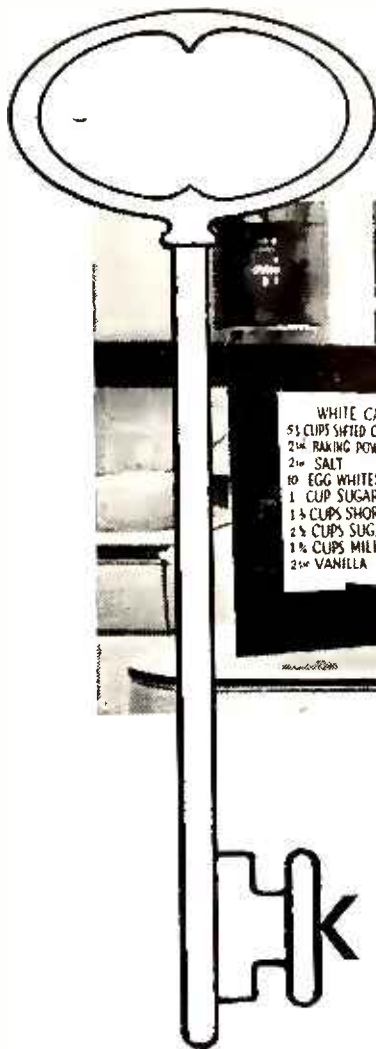 WHITE CA
CUPS SIFTED C
BAKING POW
SALT
10 EGG WHITES
1 CUP SUGAR
CUPS SHOR
CUPS SUGA
CUPS MILK
VANILLA
K